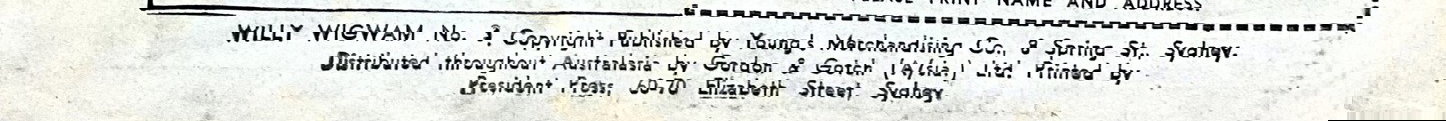 PLEASE PRINT NAME AND ADDRESS
WILLY WIGWAM No. Copyright. Published by Young's Merchandising Co., Spring St., Sydney.
Distributed throughout Australasia by Gordon & Gotch (A'sia) Ltd. Printed by
President Press, Elizabeth Street, Sydney